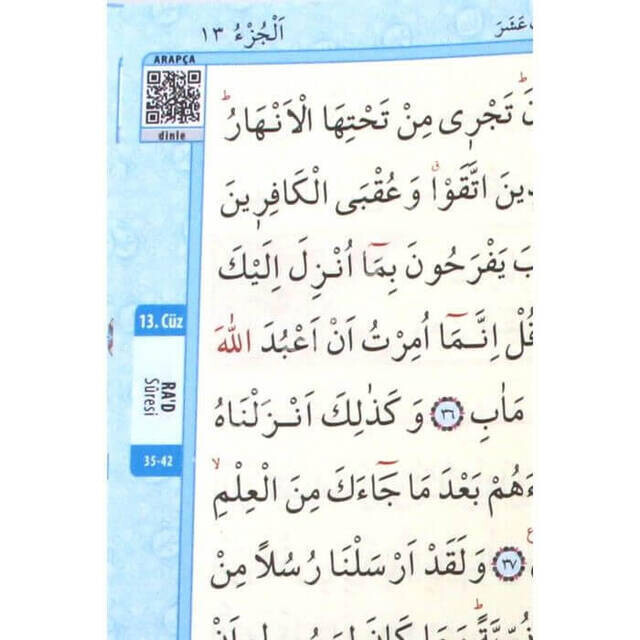 اَلْجُزْءُ ١٣
ARAPÇA
dinle
تَجْرٖى مِنْ تَحْتِهَا الْاَنْهَارُ
اتَّقَوْا وَعُقْبَى الْكَافِرٖينَ
يَفْرَحُونَ بِمَٓا اُنْزِلَ اِلَيْكَ
قُلْ اِنَّمَٓا اُمِرْتُ اَنْ اَعْبُدَ اللّٰهَ
مَاٰبِ ٣٦ وَكَذٰلِكَ اَنْزَلْنَاهُ
بَعْدَ مَا جَٓاءَكَ مِنَ الْعِلْمِ
٣٧ وَلَقَدْ اَرْسَلْنَا رُسُلًا مِنْ
13. Cüz
RA'D
Sûresi
35-42